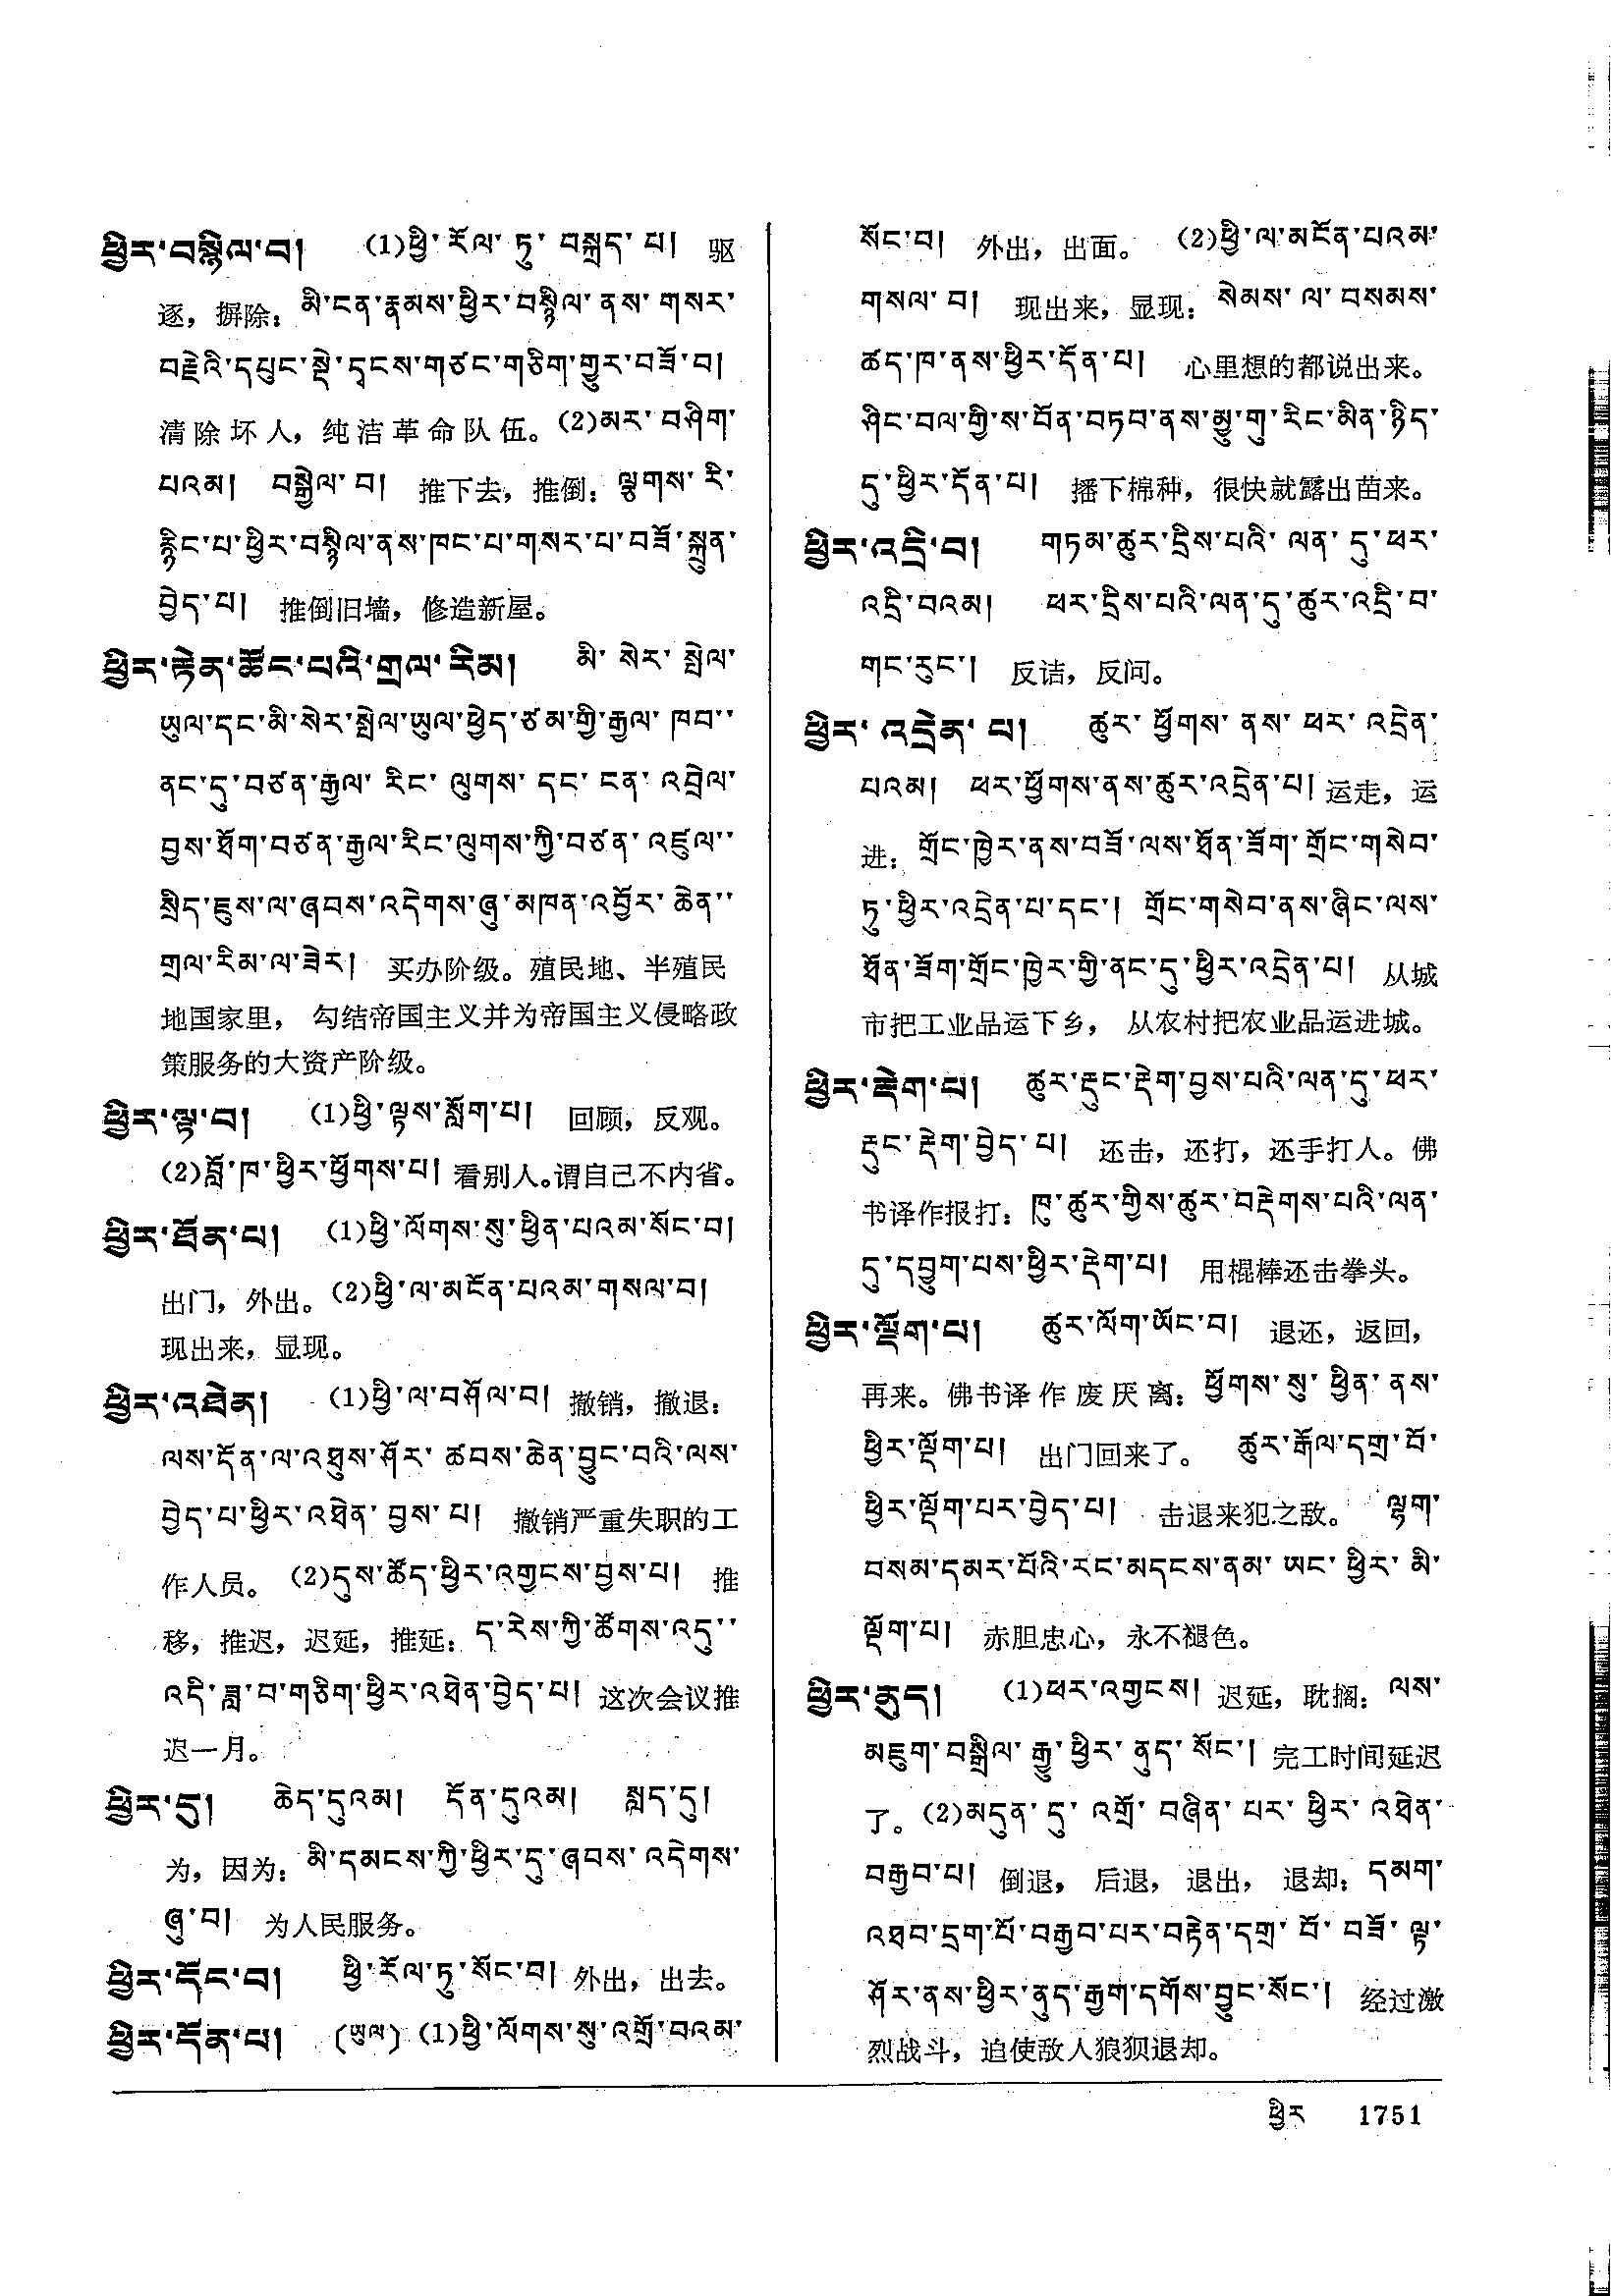 ཕྱིར་བསྙིལ་བ། (1)ཕྱི་རོལ་ཏུ་བསྐྲད་པ། 驱
逐，摒除：མི་ངན་རྣམས་ཕྱིར་བསྙིལ་ནས་གསར་
བརྗེའི་དཔུང་སྡེ་དྭངས་གཙང་གཅིག་གྱུར་བཟོ་བ།
清除坏人，纯洁革命队伍。(2)མར་བཤིག་
པའམ། བསྒྱེལ་བ། 推下去，推倒：ལྕགས་རི་
རྙིང་པ་ཕྱིར་བསྙིལ་ནས་ཁང་པ་གསར་པ་བཟོ་སྐྲུན་
བྱེད་པ། 推倒旧墙，修造新屋。
ཕྱིར་རྟེན་ཚོང་པའི་གྲལ་རིམ། མི་སེར་སྤེལ་
ཡུལ་དང་མི་སེར་སྤེལ་ཡུལ་ཕྱེད་ཙམ་གྱི་རྒྱལ་ཁབ་
ནང་དུ་བཙན་རྒྱལ་རིང་ལུགས་དང་ངན་འབྲེལ་
བྱས་ཐོག་བཙན་རྒྱལ་རིང་ལུགས་ཀྱི་བཙན་འཛུལ་
སྲིད་ཇུས་ལ་ཞབས་འདེགས་ཞུ་མཁན་འབྱོར་ཆེན་
གྲལ་རིམ་ལ་ཟེར། 买办阶级。殖民地、半殖民
地国家里，勾结帝国主义并为帝国主义侵略政
策服务的大资产阶级。
ཕྱིར་ལྟ་བ། (1)ཕྱི་ལྟས་སློག་པ། 回顾，反观。
(2)བློ་ཁ་ཕྱིར་ཕྱོགས་པ། 看别人。谓自己不内省。
ཕྱིར་ཐོན་པ། (1)ཕྱི་ལོགས་སུ་ཕྱིན་པའམ་སོང་བ།
出门，外出。(2)ཕྱི་ལ་མངོན་པའམ་གསལ་བ།
现出来，显现。
ཕྱིར་འཐེན། (1)ཕྱི་ལ་བཤོལ་བ། 撤销，撤退：
ལས་དོན་ལ་འཐུས་ཤོར་ཚབས་ཆེན་བྱུང་བའི་ལས་
བྱེད་པ་ཕྱིར་འཐེན་བྱས་པ། 撤销严重失职的工
作人员。(2)དུས་ཚོད་ཕྱིར་འགྱངས་བྱས་པ། 推
移，推迟，迟延，推延：ད་རེས་ཀྱི་ཚོགས་འདུ་
འདི་ཟླ་བ་གཅིག་ཕྱིར་འཐེན་བྱེད་པ། 这次会议推
迟一月。
ཕྱིར་དུ། ཆེད་དུའམ། དོན་དུའམ། སླད་དུ།
为，因为：མི་དམངས་ཀྱི་ཕྱིར་དུ་ཞབས་འདེགས་
ཞུ་བ། 为人民服务。
ཕྱིར་དོང་བ། ཕྱི་རོལ་ཏུ་སོང་བ། 外出，出去。
ཕྱིར་དོན་པ། (ཡུལ) (1)ཕྱི་ལོགས་སུ་འགྲོ་བའམ་
སོང་བ། 外出，出面。 (2)ཕྱི་ལ་མངོན་པའམ་
གསལ་བ། 现出来，显现：སེམས་ལ་བསམས་
ཚད་ཁ་ནས་ཕྱིར་དོན་པ། 心里想的都说出来。
ཤིང་བལ་གྱི་ས་བོན་བཏབ་ནས་མྱུ་གུ་རིང་མིན་ཉིད་
དུ་ཕྱིར་དོན་པ། 播下棉种，很快就露出苗来。
ཕྱིར་འདྲི་བ། གཏམ་ཚུར་དྲིས་པའི་ལན་དུ་ཕར་
འདྲི་བའམ། ཕར་དྲིས་པའི་ལན་དུ་ཚུར་འདྲི་བ་
གང་རུང་། 反诘，反问。
ཕྱིར་འདྲེན་པ། ཚུར་ཕྱོགས་ནས་ཕར་འདྲེན་
པའམ། ཕར་ཕྱོགས་ནས་ཚུར་འདྲེན་པ། 运走，运
进：གྲོང་ཁྱེར་ནས་བཟོ་ལས་ཐོན་ཟོག་གྲོང་གསེབ་
ཏུ་ཕྱིར་འདྲེན་པ་དང་། གྲོང་གསེབ་ནས་ཞིང་ལས་
ཐོན་ཟོག་གྲོང་ཁྱེར་གྱི་ནང་དུ་ཕྱིར་འདྲེན་པ། 从城
市把工业品运下乡，从农村把农业品运进城。
ཕྱིར་རྡེག་པ། ཚུར་རྡུང་རྡེག་བྱས་པའི་ལན་དུ་ཕར་
རྡུང་རྡེག་བྱེད་པ། 还击，还打，还手打人。佛
书译作报打：ཁུ་ཚུར་གྱིས་ཚུར་བརྡེགས་པའི་ལན་
དུ་དབྱུག་པས་ཕྱིར་རྡེག་པ། 用棍棒还击拳头。
ཕྱིར་ལྡོག་པ། ཚུར་ལོག་ཡོང་བ། 退还，返回，
再来。佛书译作废厌离：ཕྱོགས་སུ་ཕྱིན་ནས་
ཕྱིར་ལྡོག་པ། 出门回来了。 ཚུར་རྒོལ་དགྲ་བོ་
ཕྱིར་ལྡོག་པར་བྱེད་པ། 击退来犯之敌。 ལྷག་
བསམ་དམར་པོའི་རང་མདངས་ནམ་ཨང་ཕྱིར་མི་
ལྡོག་པ། 赤胆忠心，永不褪色。
ཕྱིར་ནུད། (1)ཕར་འགྱངས། 迟延，耽搁：ལས་
མཇུག་བསྒྲིལ་རྒྱུ་ཕྱིར་ནུད་སོང་། 完工时间延迟
了。(2)མདུན་དུ་འགྲོ་བཞིན་པར་ཕྱིར་འཐེན་
བརྒྱབ་པ། 倒退，后退，退出，退却：དམག་
འཐབ་དྲག་པོ་བརྒྱབ་པར་བརྟེན་དགྲ་བོ་བཟོ་ལྟ་
ཤོར་ནས་ཕྱིར་ནུད་རྒྱག་དགོས་བྱུང་སོང་། 经过激
烈战斗，迫使敌人狼狈退却。
ཕྱིར 1751